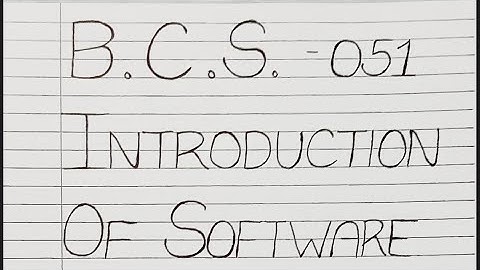 B.C.S. -051
INTRODUCTION
OF SOFTWARE